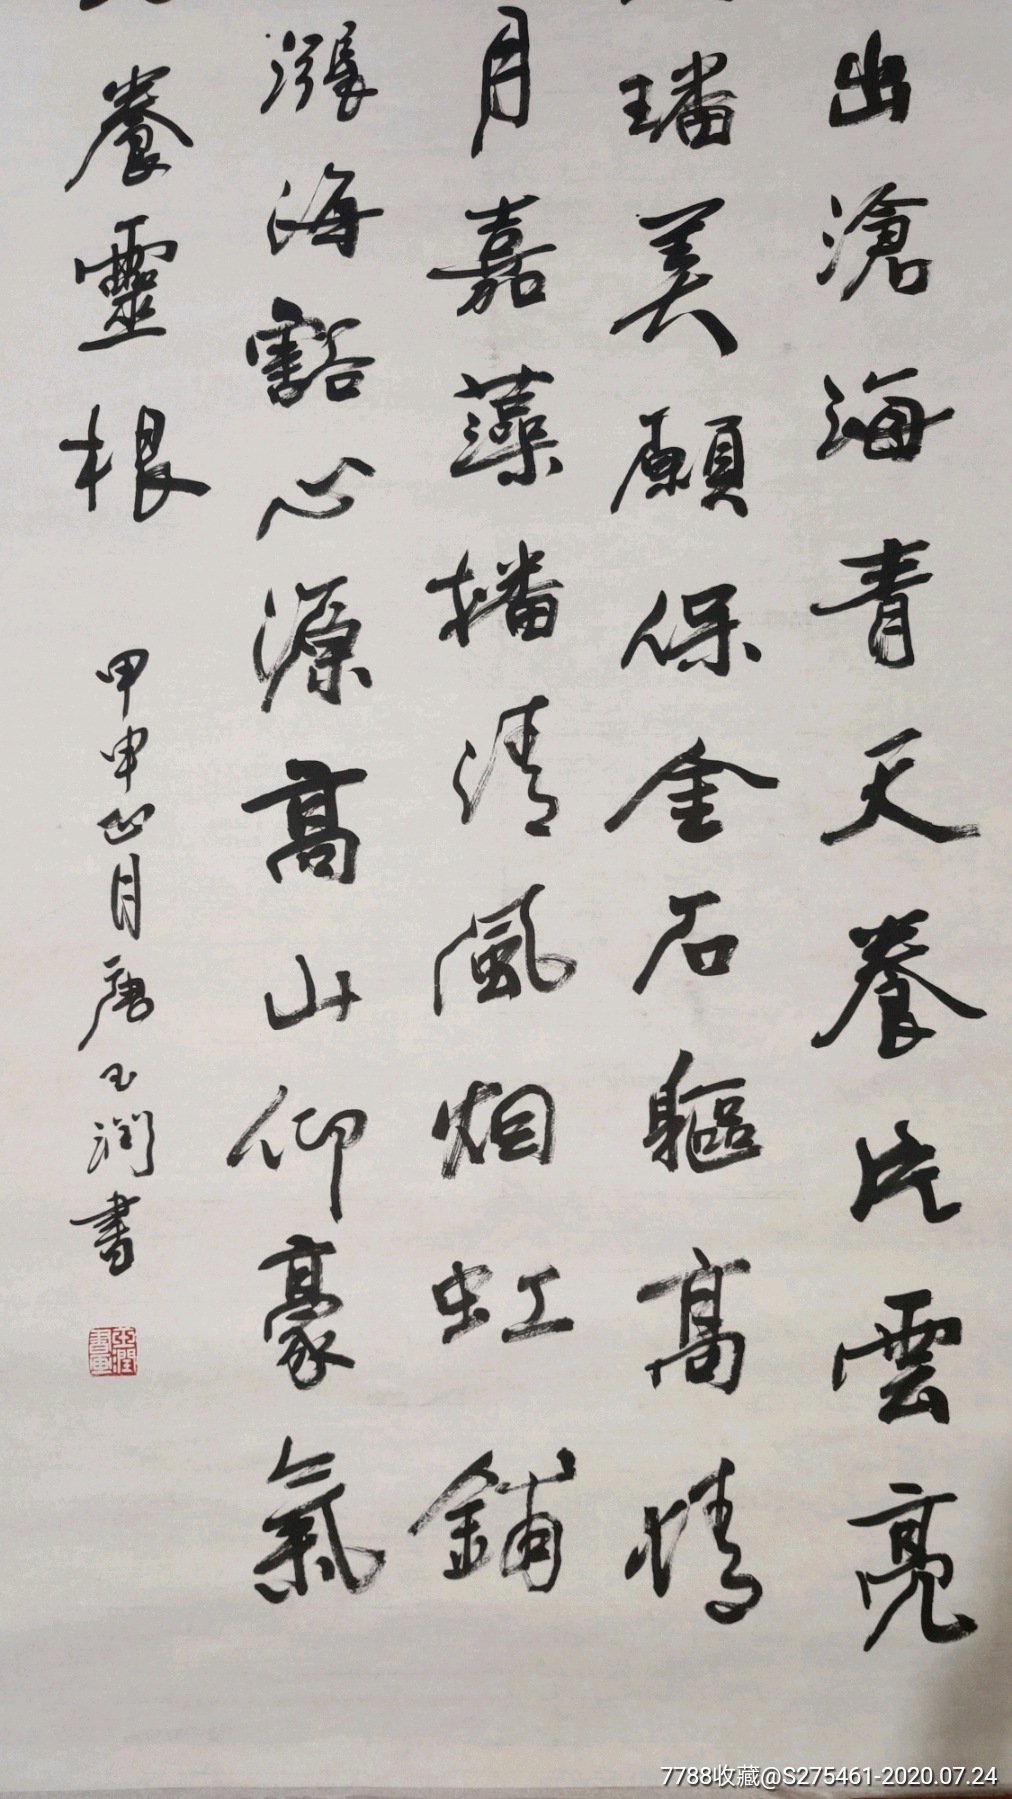 出滄海青天養片雲亮
璠美願保金石軀高情
月嘉藻播清風烟虹鋪
漲海豁心源高山仰豪氣
養靈根
甲申正月唐玉潤書
玉潤書画
7788收藏@S275461-2020.07.24